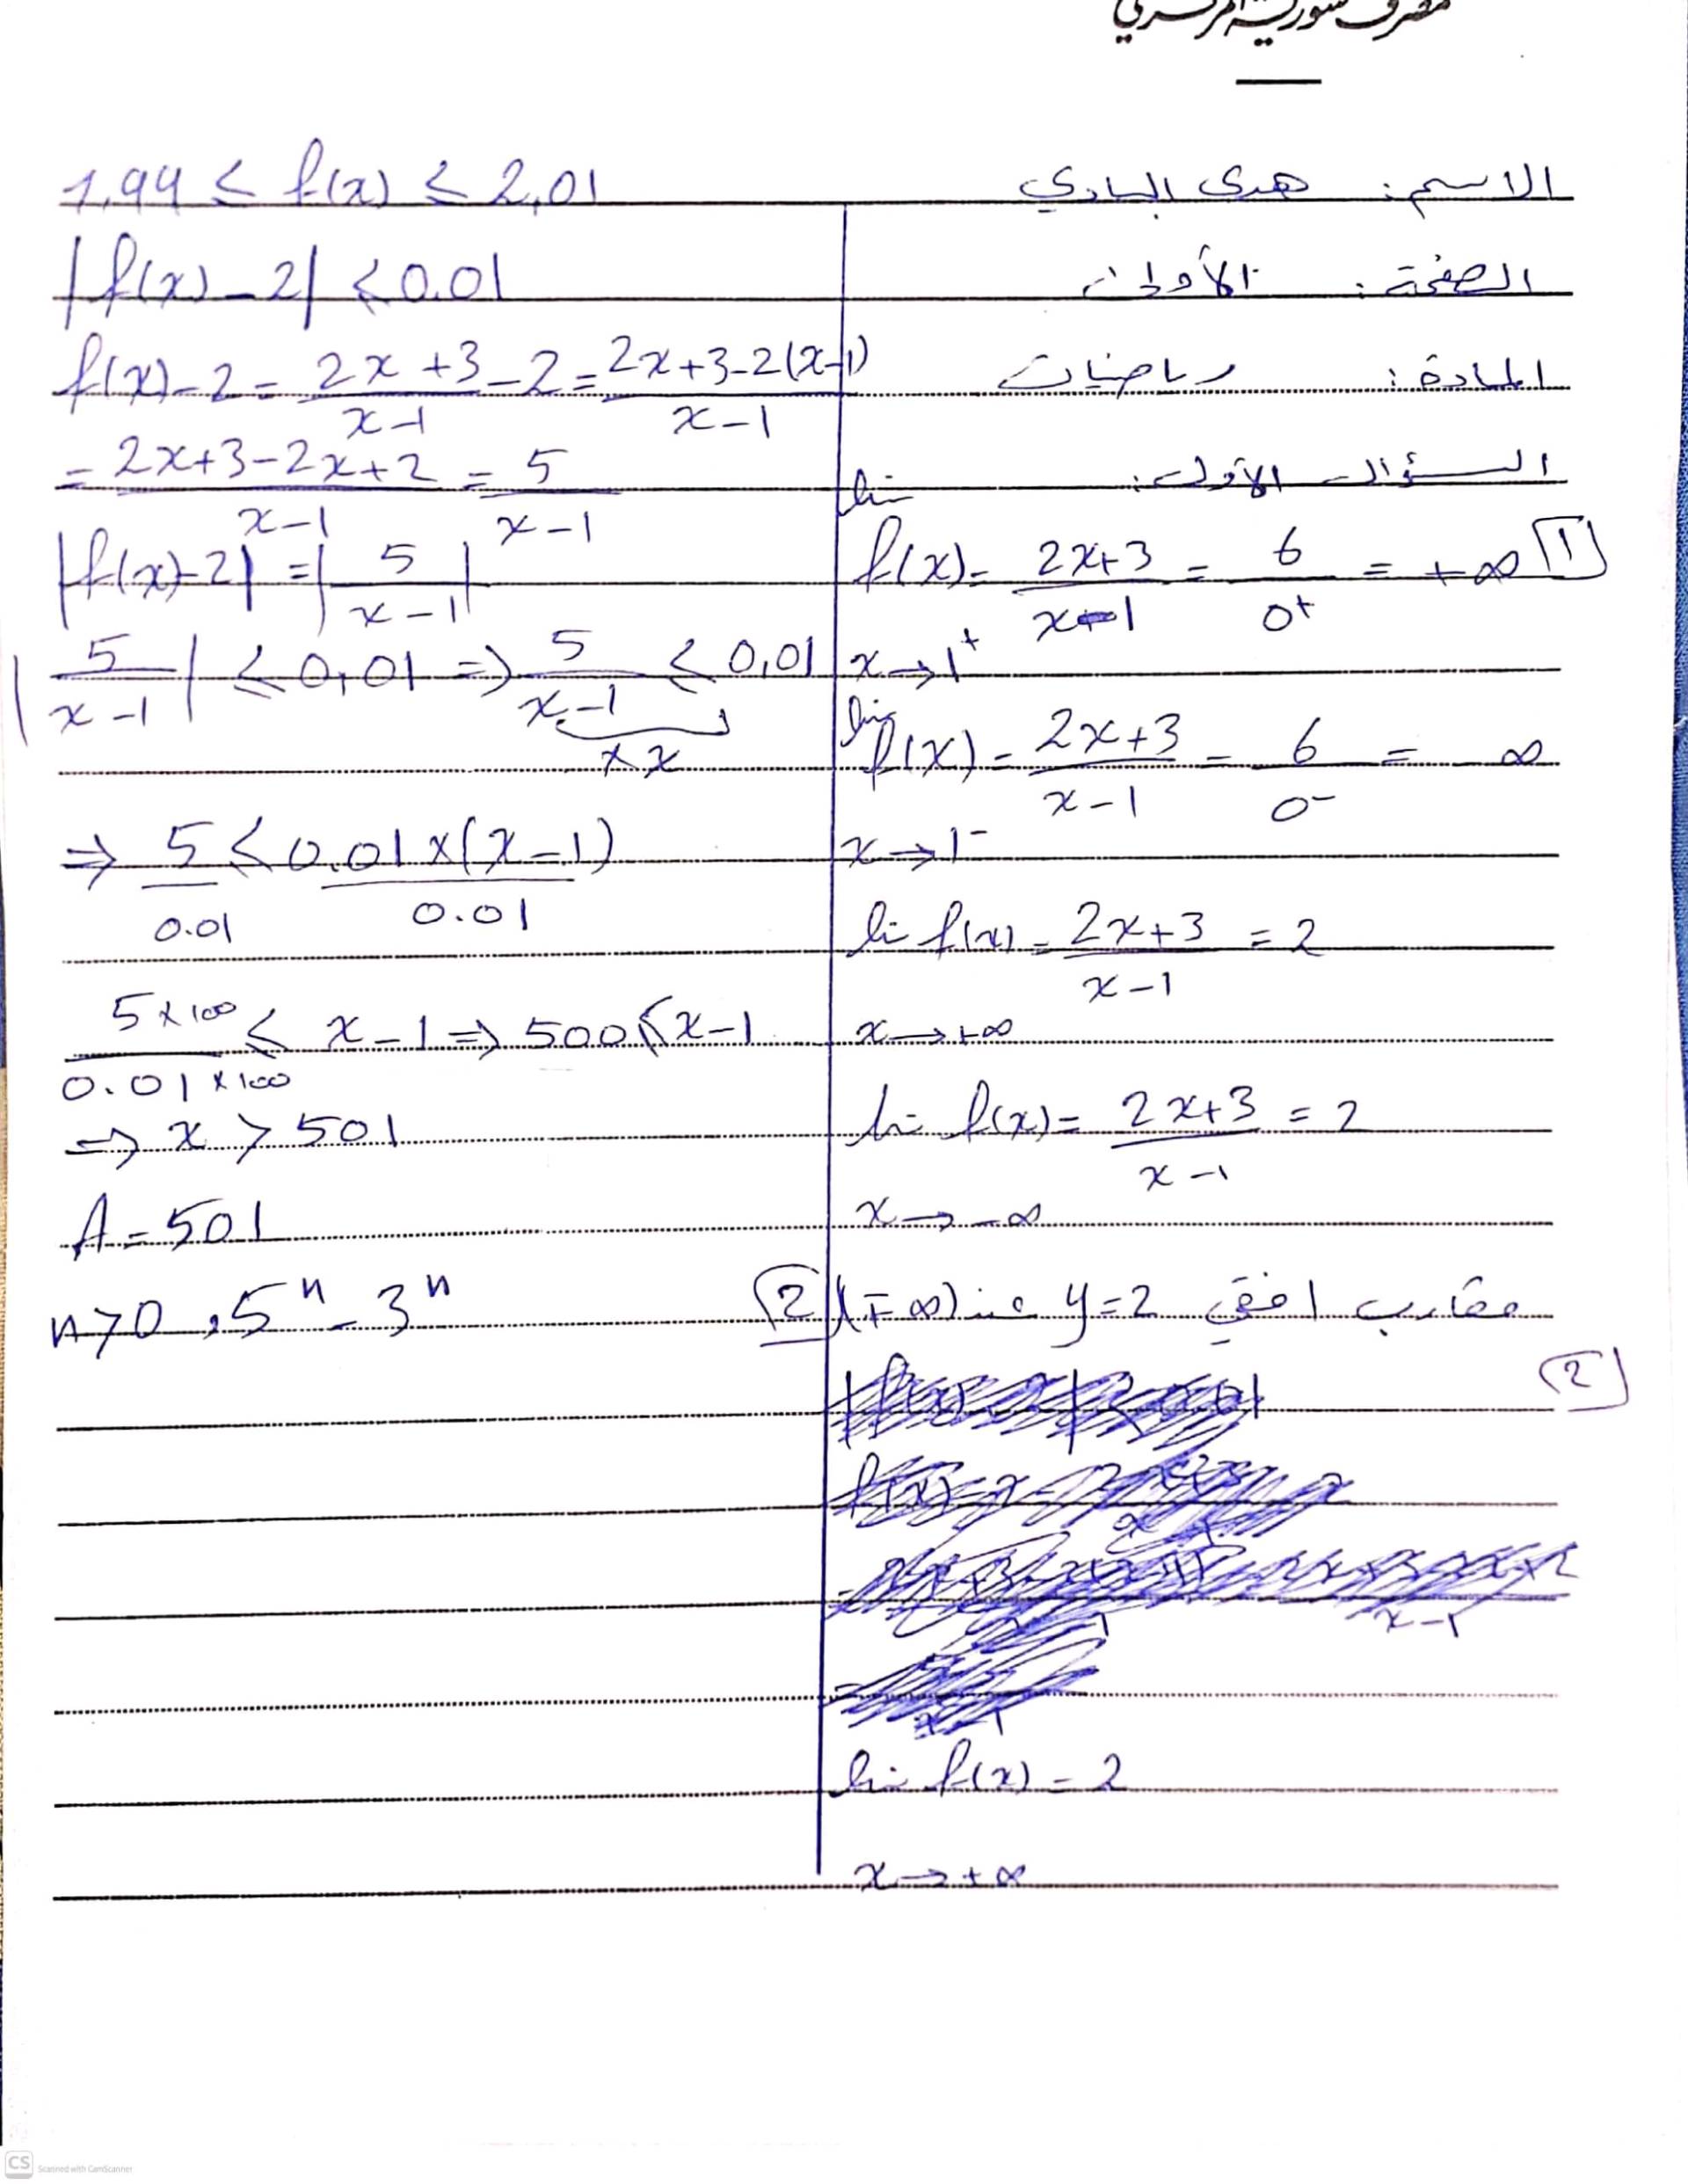 مصرف سورية المركزي
الاسم: هدى البادي
الصفحة: الأولى
المادة: رياضيات
السؤال الأول:
lim f(x) = 2x+3 / x-1 = 6 / 0+ = +∞ [1]
x→1+
lim f(x) = 2x+3 / x-1 = 6 / 0- = -∞
x→1-
li f(x) = 2x+3 / x-1 = 2
x→+∞
li f(x) = 2x+3 / x-1 = 2
x→-∞
مقارب افقي y=2 عند (∓∞)
[2]
li f(x) = 2
x→+∞
1,99 ≤ f(x) ≤ 2,01
|f(x)-2| ≤ 0.01
f(x)-2 = 2x+3 / x-1 - 2 = 2x+3-2(x-1) / x-1
= 2x+3-2x+2 / x-1 = 5 / x-1
|f(x)-2| = |5 / x-1|
|5 / x-1| ≤ 0,01 ⇒ 5 / x-1 ≤ 0,01
⇒ 5 / 0.01 ≤ 0.01×(x-1) / 0.01
5×100 / 0.01×100 ≤ x-1 ⇒ 500 ≤ x-1
⇒ x > 501
A = 501
n>0, 5ⁿ - 3ⁿ [2]
CS Scanned with CamScanner